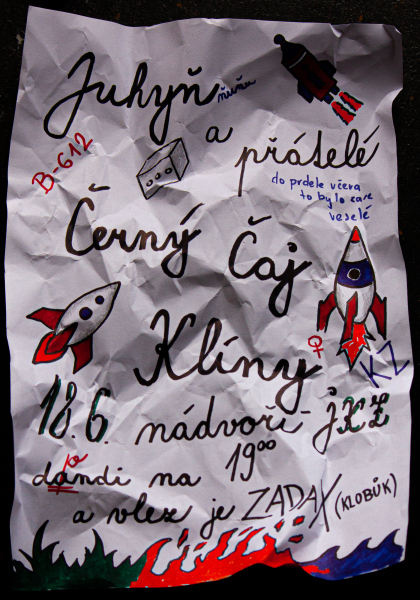 Juhyň
ňuňu
B-612
a
přátelé
do prdele včera
to bylo zase
veselé
Černý Čaj
Klíny
♀
KZ
18.6. nádvoří JKZ
dandi na 19⁰⁰
a vlez je ZADAX (KLOBÚK)